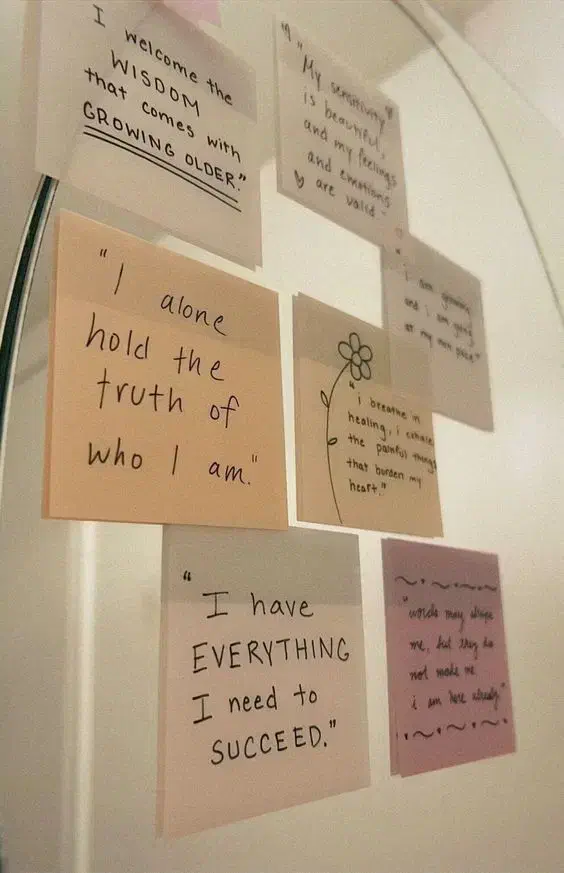 I welcome the
WISDOM
that comes with
GROWING OLDER."
"My sensitivity
is beautiful,
and my feelings
and emotions
are valid"
"i am growing
and i am going
at my own pace"
"I alone
hold the
truth of
who I am."
"i breathe in
healing, i exhale
the painful things
that burden my
heart."
"I have
EVERYTHING
I need to
SUCCEED."
"words may
me, but they do
not make me.
i am here already"